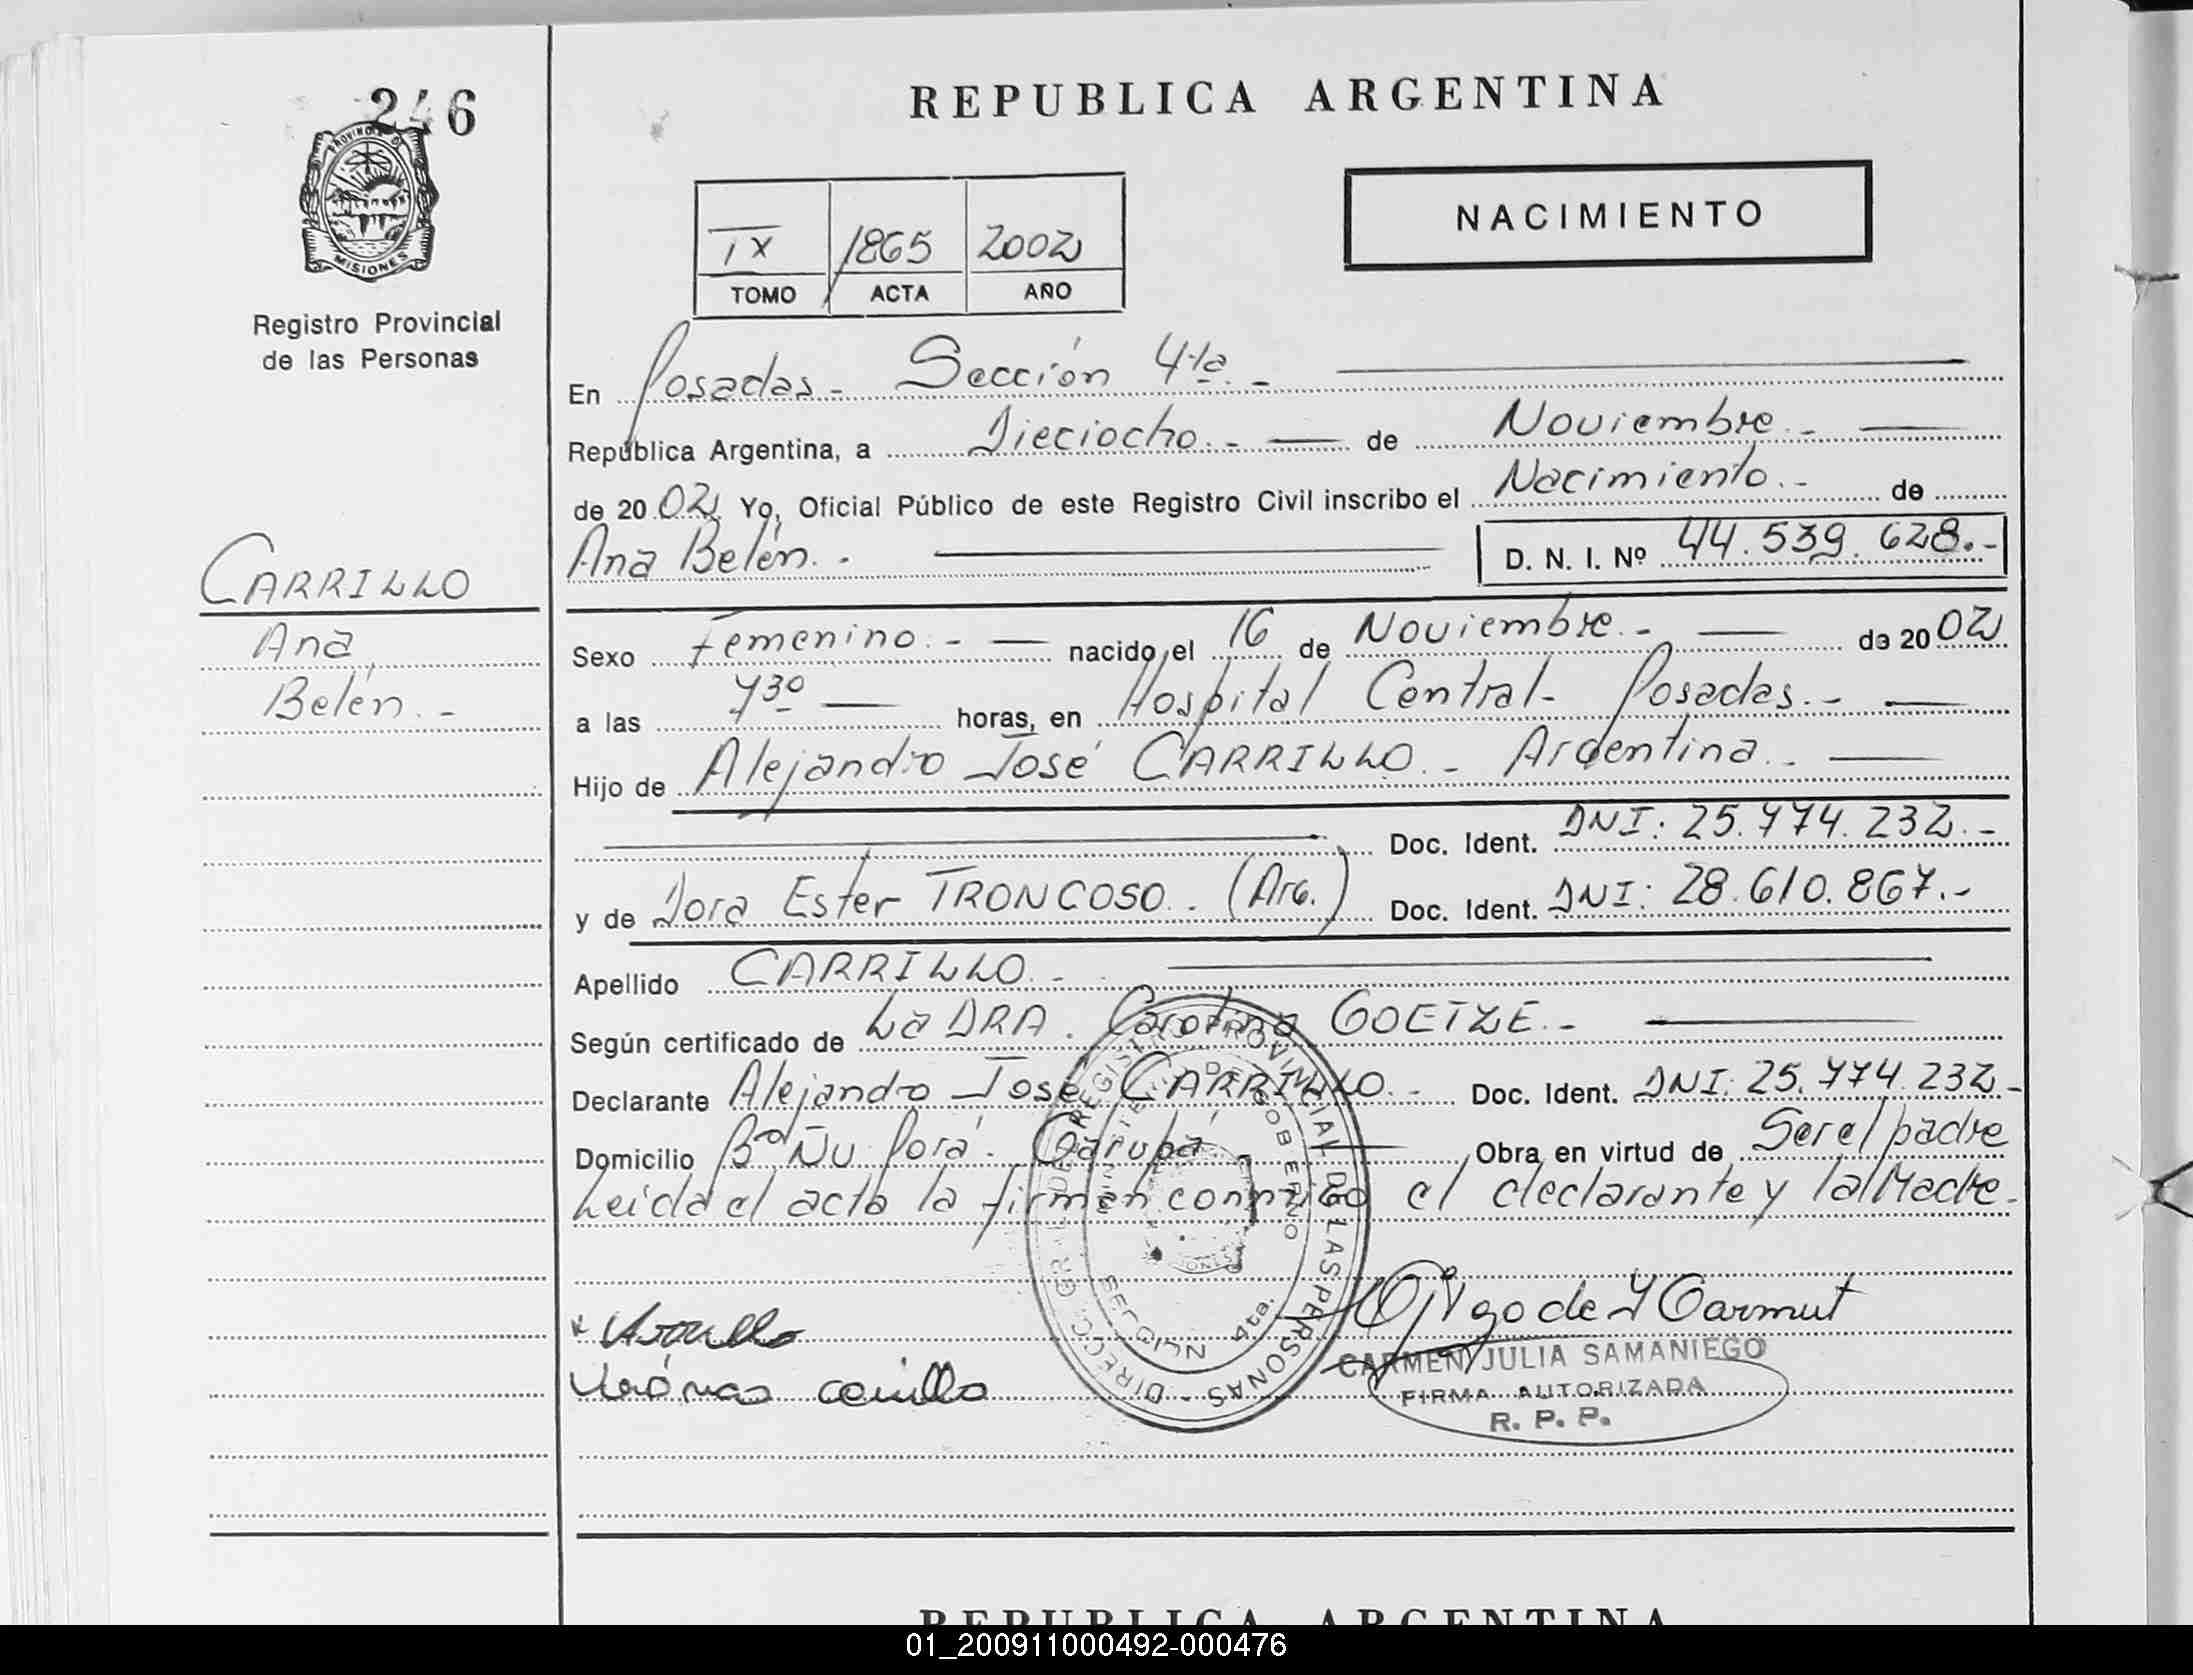 246
PROVINCIA DE
MISIONES
Registro Provincial
de las Personas
CARRILLO
Ana
Belén.-
REPUBLICA ARGENTINA
NACIMIENTO
IX 1865 2002
TOMO ACTA AÑO
En Posadas - Sección 4ta.-
República Argentina, a Dieciocho.- de Noviembre.-
de 2002 Yo, Oficial Público de este Registro Civil inscribo el Nacimiento.- de
Ana Belén.- D. N. I. Nº 44.539.628.-
Sexo Femenino.- nacido el 16 de Noviembre.- de 2002
a las 730 horas, en Hospital Central- Posadas.-
Hijo de Alejandro José CARRILLO.- Argentina.-
Doc. Ident. DNI: 25.774.232.-
y de Dora Ester TRONCOSO.. (Arg.) Doc. Ident. DNI: 28.610.867.-
Apellido CARRILLO.-
Según certificado de La DRA. Carolina GOETZE.-
Declarante Alejandro José CARRILLO.- Doc. Ident. DNI: 25.774.232-
Domicilio Bº Ñu Porá. Garupá - Obra en virtud de Ser el padre
Leida el acta la firman conmigo el declarante y la Madre.
DIRECC. GRAL. DE REGISTRO PROVINCIAL DE LAS PERSONAS -
MINISTERIO DE GOBIERNO
SECCION 4ta.
CARMEN JULIA SAMANIEGO
FIRMA AUTORIZADA
R. P. P.
REPUBLICA ARGENTINA
01_200911000492-000476